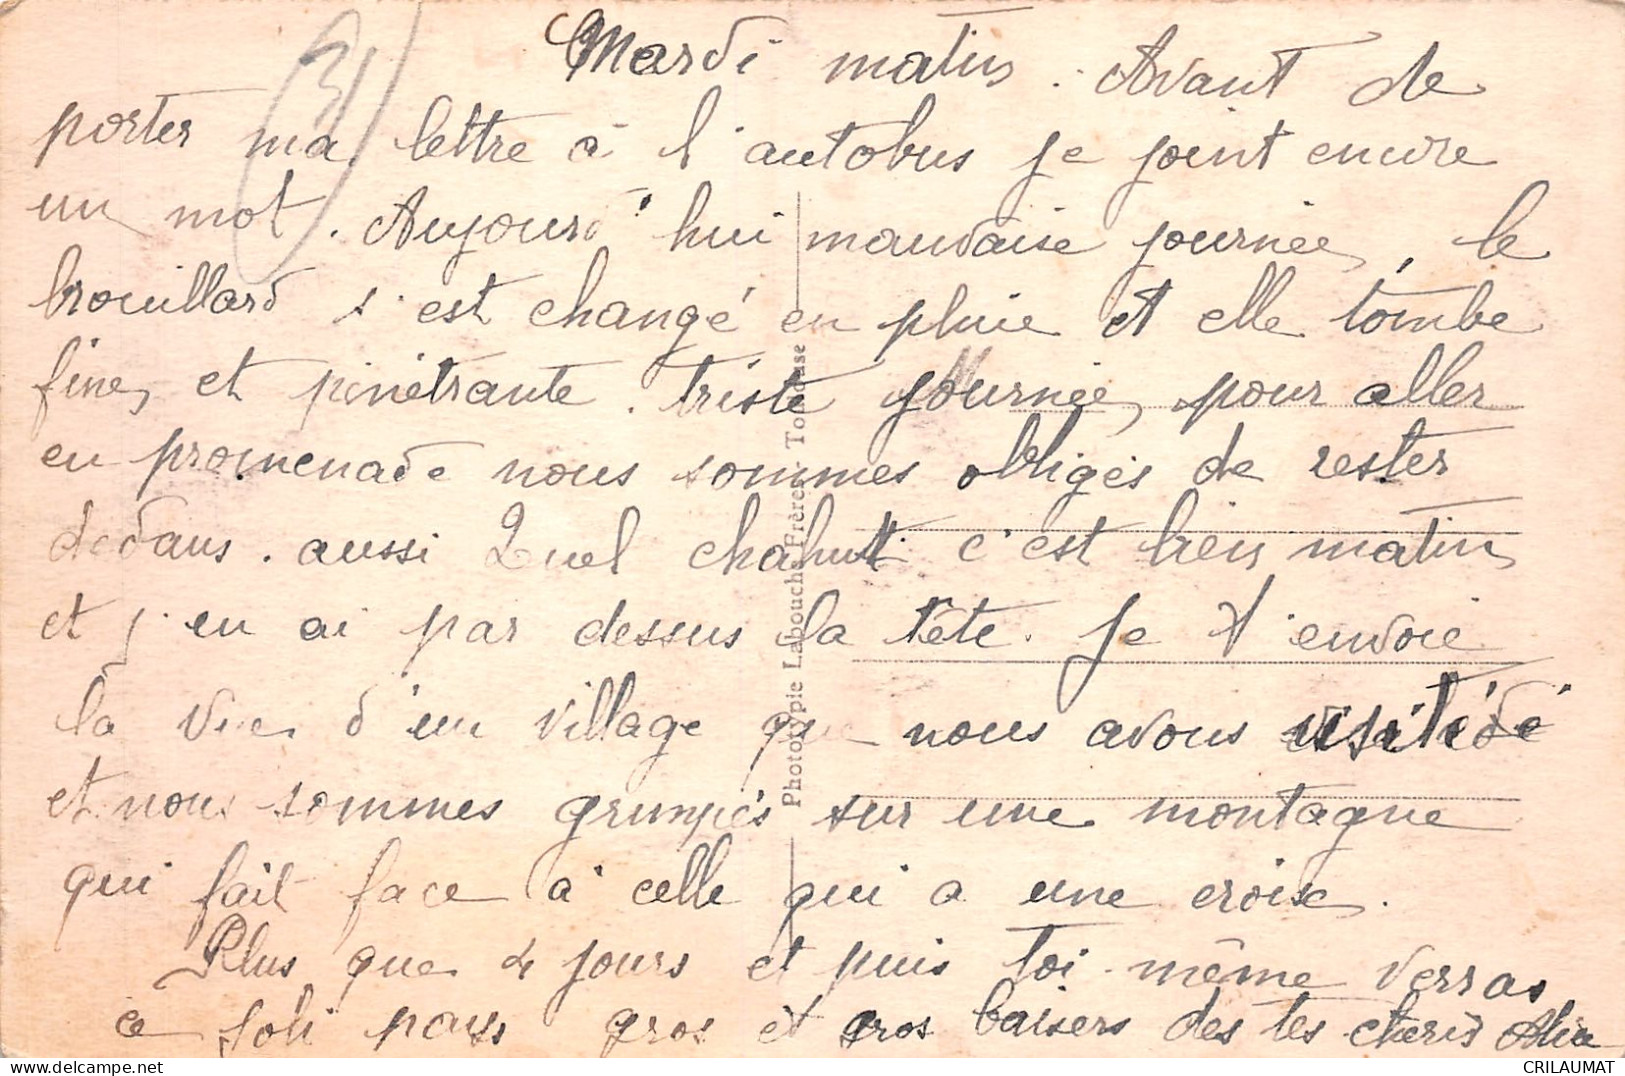 Mardi matin. Avant de
porter ma lettre à l'autobus je joint encore
un mot. Aujourd'hui mauvaise journée, le
brouillard s'est changé en pluie et elle tombe
fine, et pinétrante. triste journée, pour aller
en promenade nous sommes obligés de rester
dedans. aussi Quel chahut c'est bien matin
et j'en ai par dessus la tête. Je t'envoie
la vue d'un village que nous avons visité
et nous sommes grimpés sur une montagne
qui fait face à celle qui a une croise.
Plus que 4 jours et puis toi-même verras
ce joli pays gros et gros baisers des tes cheris
Phototypie Labouche Frères - Toulouse
31
CRILAUMAT
www.delcampe.net